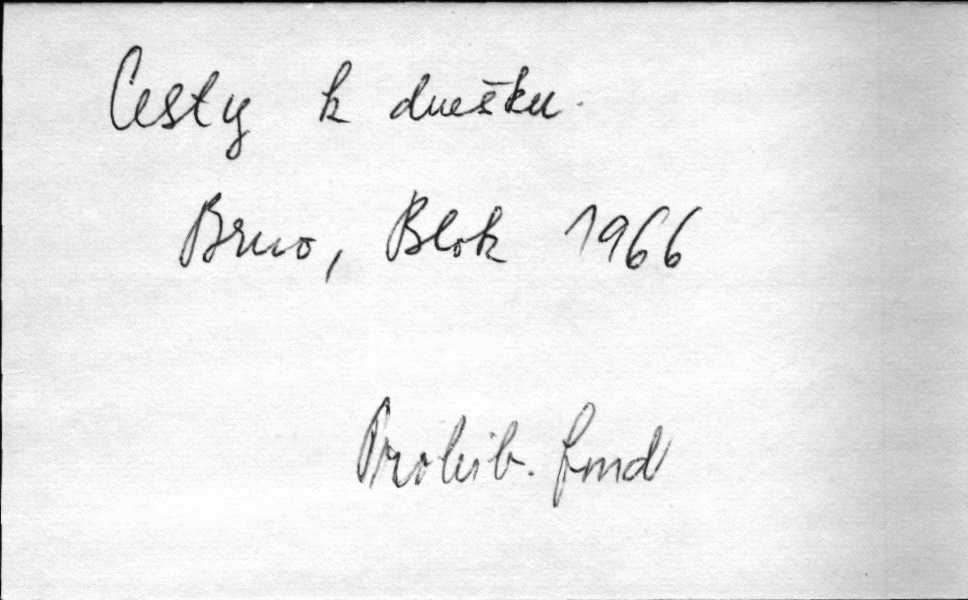 Cesty k dnešku.
Brno, Blok 1966
Prohib. fond